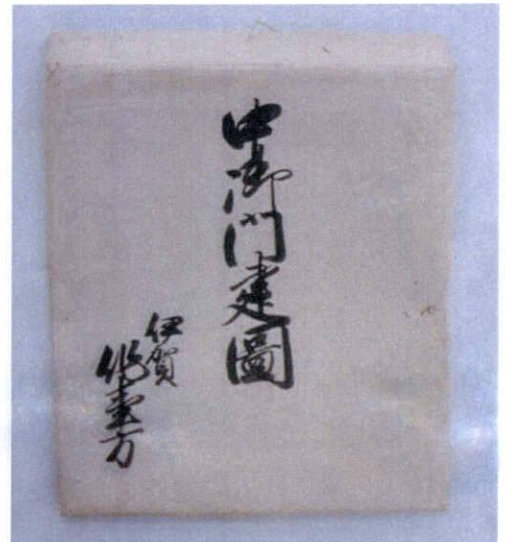 中御門建圖
伊賀
作事方